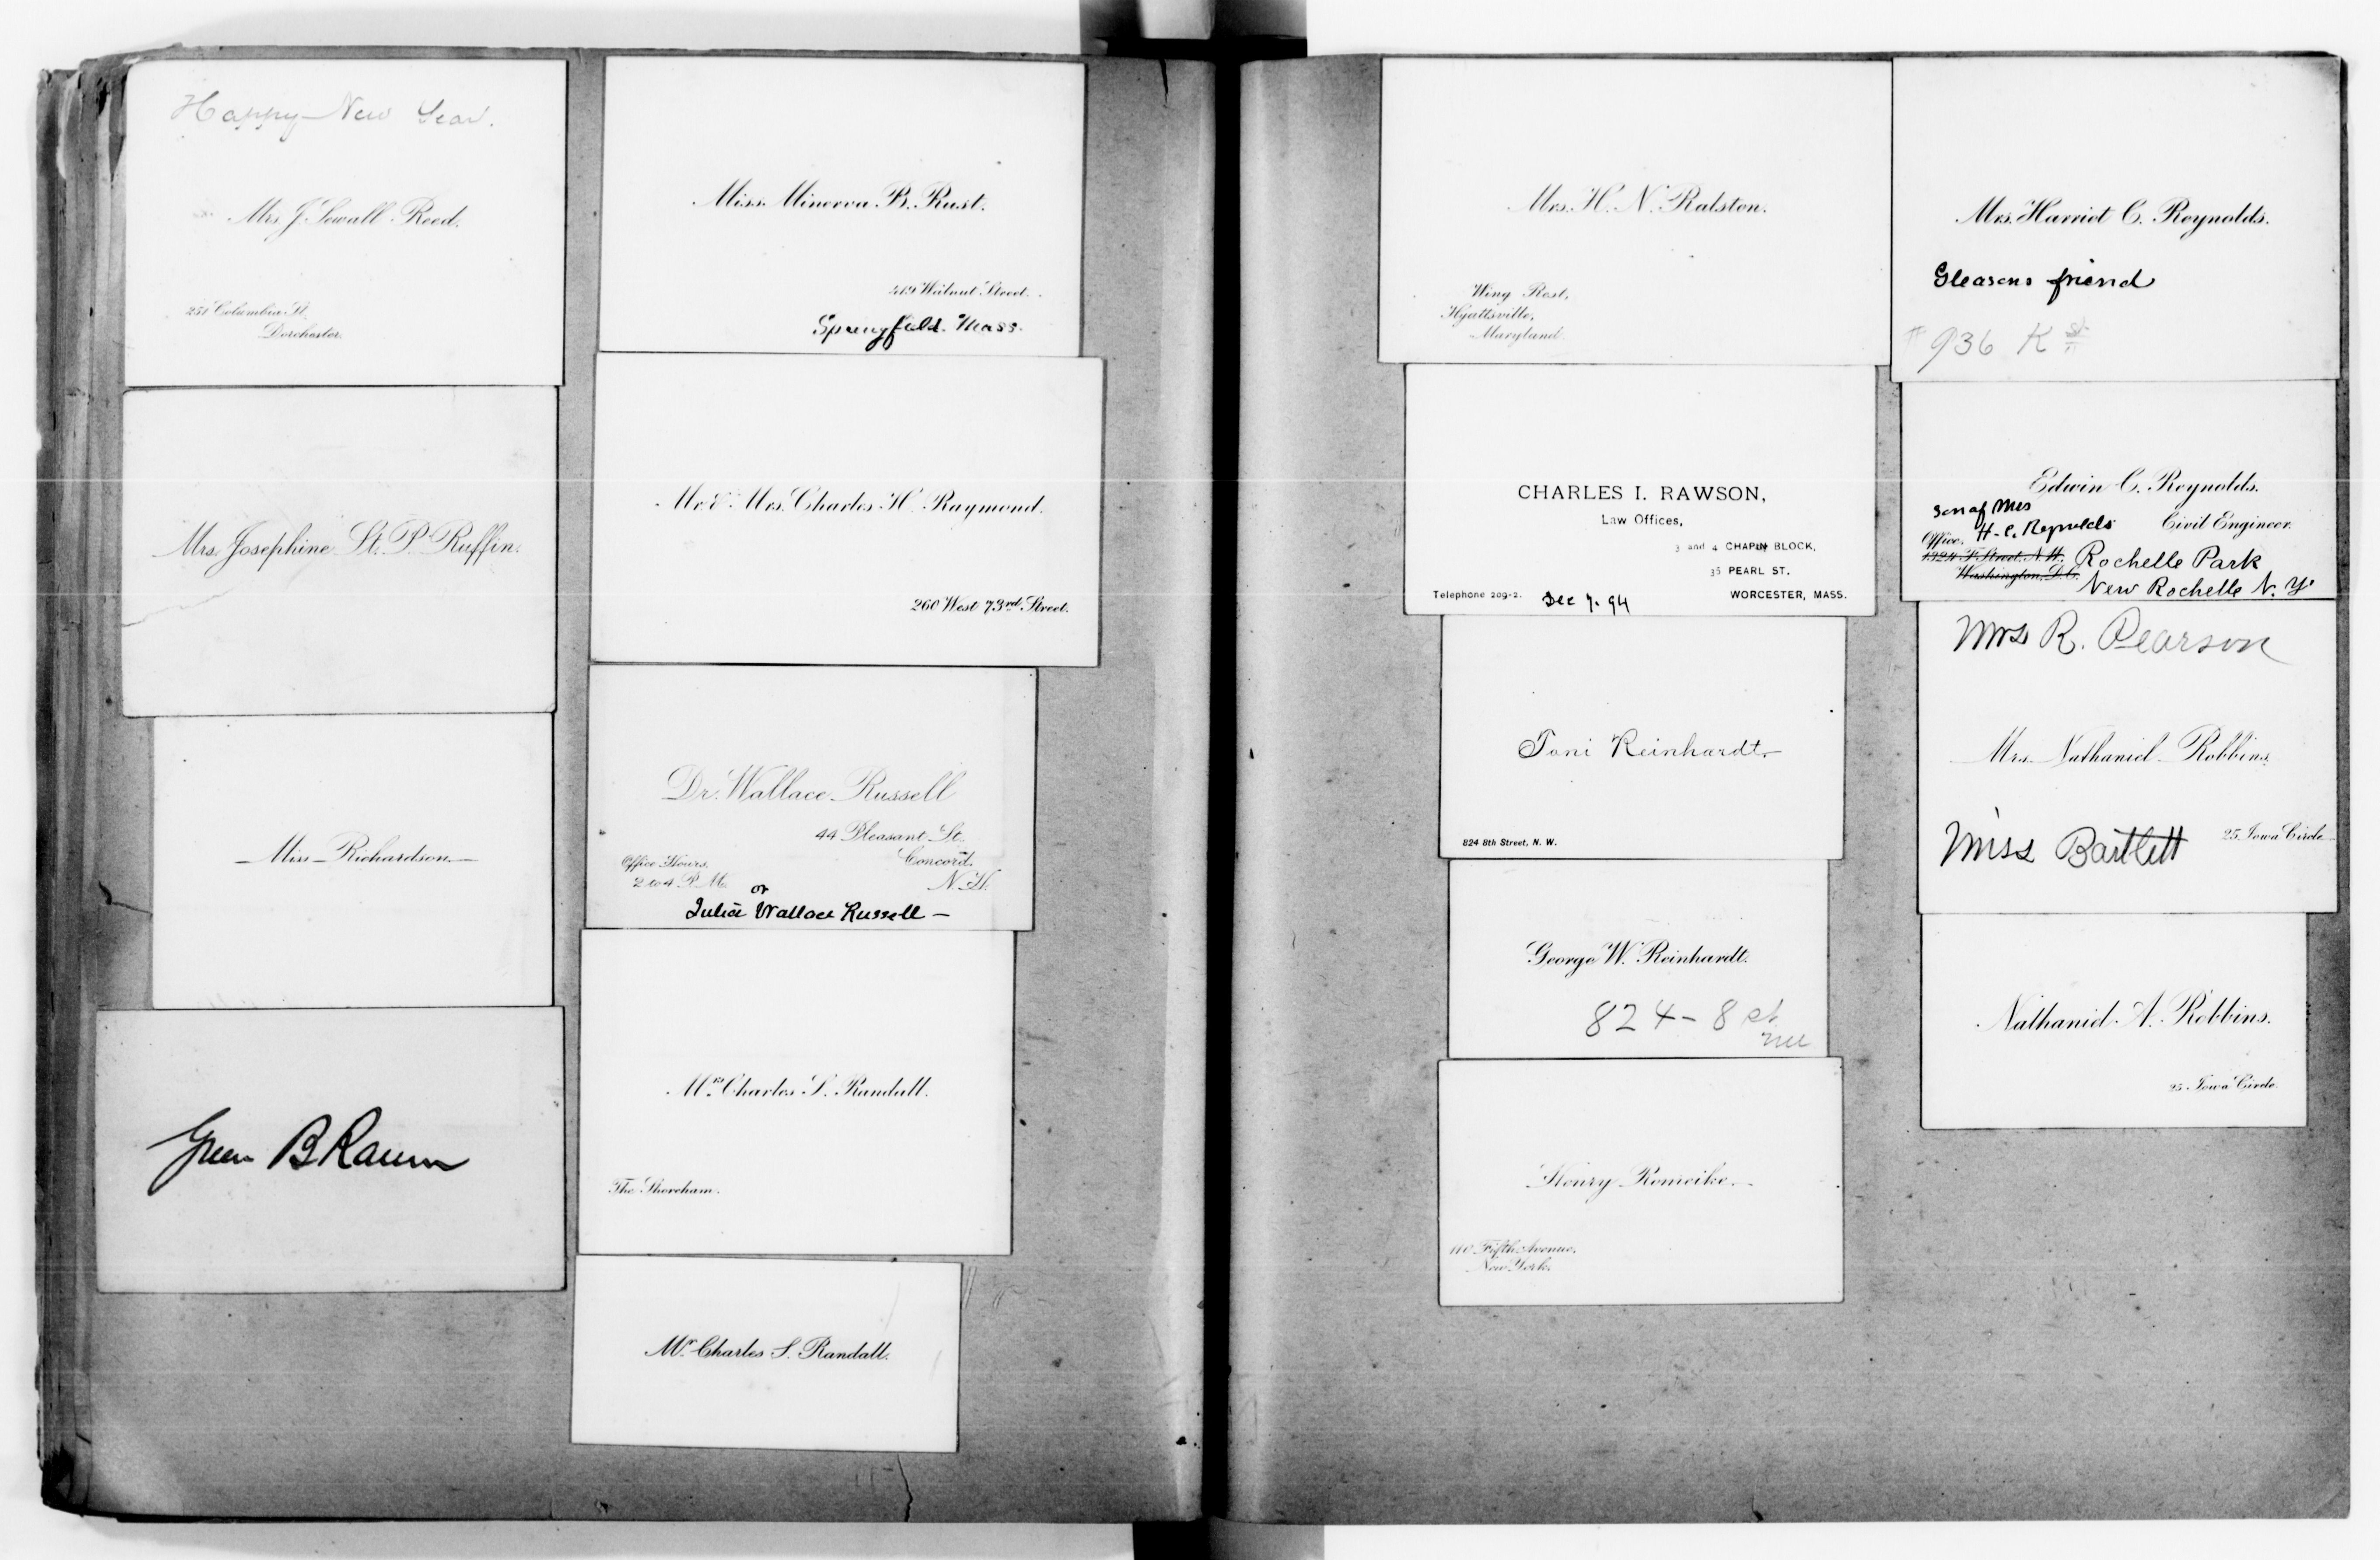 Happy New Year.
Mrs. J. Sewall Reed.
251 Columbia St.
Dorchester.
Mrs. Josephine St. P. Ruffin.
Miss Richardson.
Green B Raum
Miss Minerva B. Rust.
419 Walnut Street.
Springfield. Mass.
Mr. & Mrs. Charles H. Raymond.
260 West 73rd Street.
Dr. Wallace Russell
44 Pleasant St.
Office Hours.
Concord.
2 to 4 P.M.
N.H.
or
Julia Wallace Russell —
Mrs. Charles S. Randall.
The Shoreham.
Mr. Charles S. Randall.
Mrs. H. N. Ralston.
Wing Rest,
Hyattsville,
Maryland.
CHARLES I. RAWSON,
Law Offices,
3 and 4 CHAPIN BLOCK,
35 PEARL ST.
Telephone 209-2.
Dec 7. 94
WORCESTER, MASS.
Toni Reinhardt
824 8th Street, N. W.
George W. Reinhardt.
824 - 8 st
nw
Henry Romeike.
110 Fifth Avenue,
New York.
Mrs. Harriet C. Reynolds.
Gleasons friend
# 936 K St
Edwin C. Reynolds.
son of Mrs
H. C. Reynolds
Civil Engineer.
Office,
1324 F. Street, N.W.
Rochelle Park
Washington, D.C.
New Rochelle N. Y.
Mrs R. Pearson
Mrs. Nathaniel Robbins,
Miss Bartlett
25 Iowa Circle
Nathaniel A. Robbins.
25 Iowa Circle.